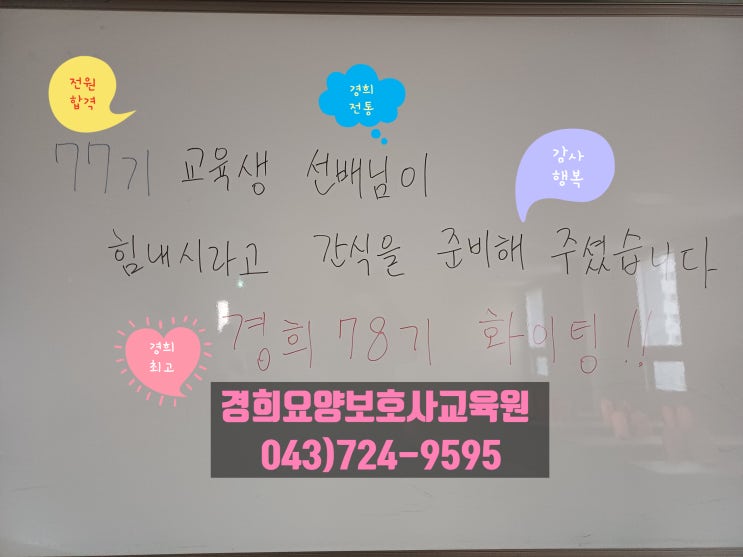 전원
합격
경희
전통
77기 교육생 선배님이
감사
행복
힘내시라고 간식을 준비해 주셨습니다
경희 78기 화이팅!!
경희
최고
경희요양보호사교육원
043)724-9595